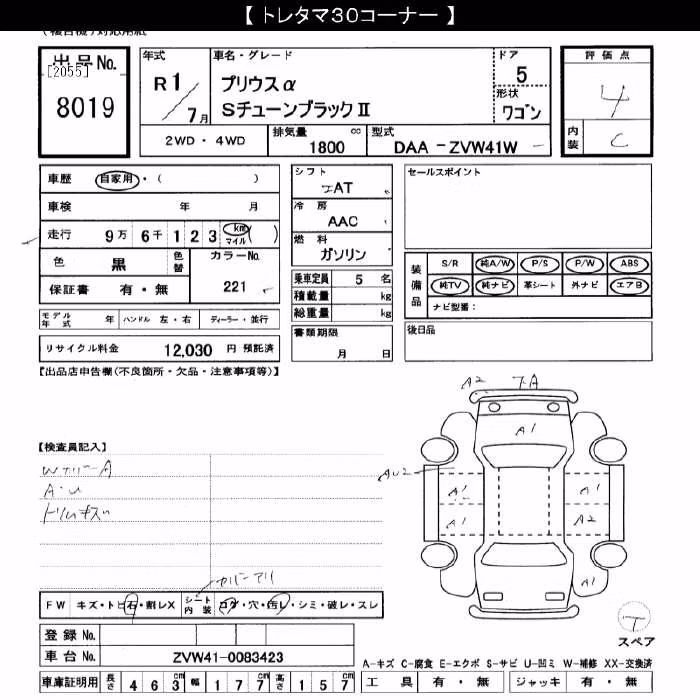 【 トレタマ30コーナー 】
出品No.
[2055]
8019
年式
R1/7月
車名・グレード
プリウスα
SチューンブラックⅡ
ドア
5
形状
ワゴン
評価点
4
内装
C
2WD・4WD
排気量 cc
1800
型式
DAA-ZVW41W
車歴 自家用・( )
車検 年 月
走行 9万 6千 1 2 3 km マイル ( )
色 黒 色替
カラーNo.
221
保証書 有・無
モデル年式 年 ハンドル 左・右 ディーラー・並行
リサイクル料金 12,030 円 預託済
シフト
AT
冷房
AAC
燃料
ガソリン
乗車定員 5 名
積載量 kg
総重量 kg
書類期限
月 日
セールスポイント
装備品
S/R 純A/W P/S P/W ABS
純TV 純ナビ 革シート 外ナビ エアB
ナビ型番:
後日品
【出品店申告欄(不良箇所・欠品・注意事項等)】
【検査員記入】
WカバーA
A・U
トリムキズ
カバーアリ
FW キズ・トビ石・割レX
シート内装 コゲ・穴・汚レ・シミ・破レ・スレ
登録No.
車台No. ZVW41-0083423
車庫証明用 長さ 463cm 幅 177cm 高さ 157cm
A2
A
A1
AU2
A1
A1
A1
A2
A1
T
スペア
A-キズ C-腐食 E-エクボ S-サビ U-凹ミ W-補修 XX-交換済
工具 有・無 ジャッキ 有・無